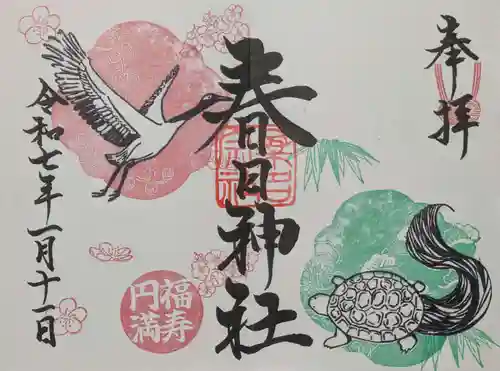 奉拝
春日神社
令和七年一月十一日
福寿
円満